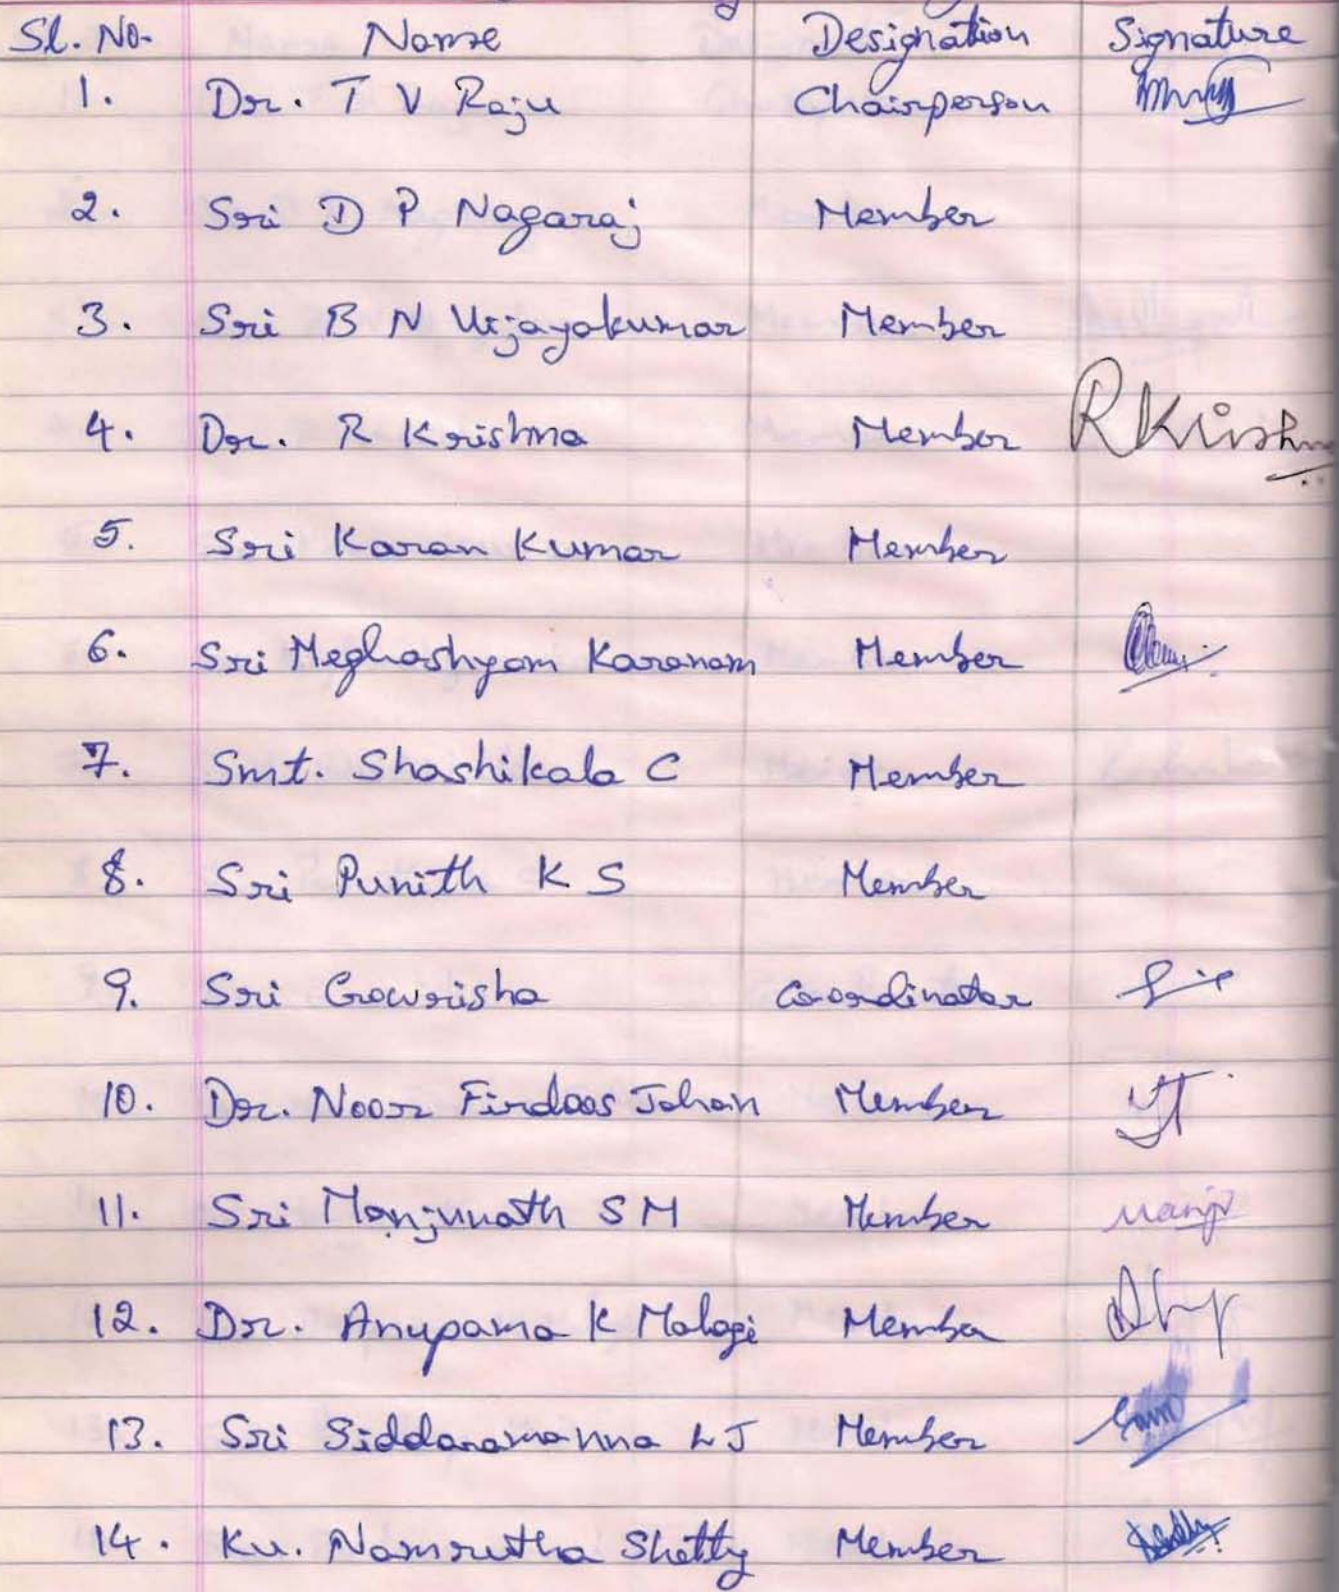 Sl. No. Name Designation Signature
1. Dr. T V Raju Chairperson
2. Sri D P Nagaraj Member
3. Sri B N Vijayakumar Member
4. Dr. R Krishna Member RKrishna
5. Sri Karan Kumar Member
6. Sri Meghashyam Karanam Member
7. Smt. Shashikala C Member
8. Sri Punith K S Member
9. Sri Gowrisha Co-ordinator
10. Dr. Noor Firdoos Jahan Member
11. Sri Manjunath S M Member Manju
12. Dr. Anupama K Malagi Member
13. Sri Siddaramanna L J Member
14. Ku. Namrutha Shetty Member